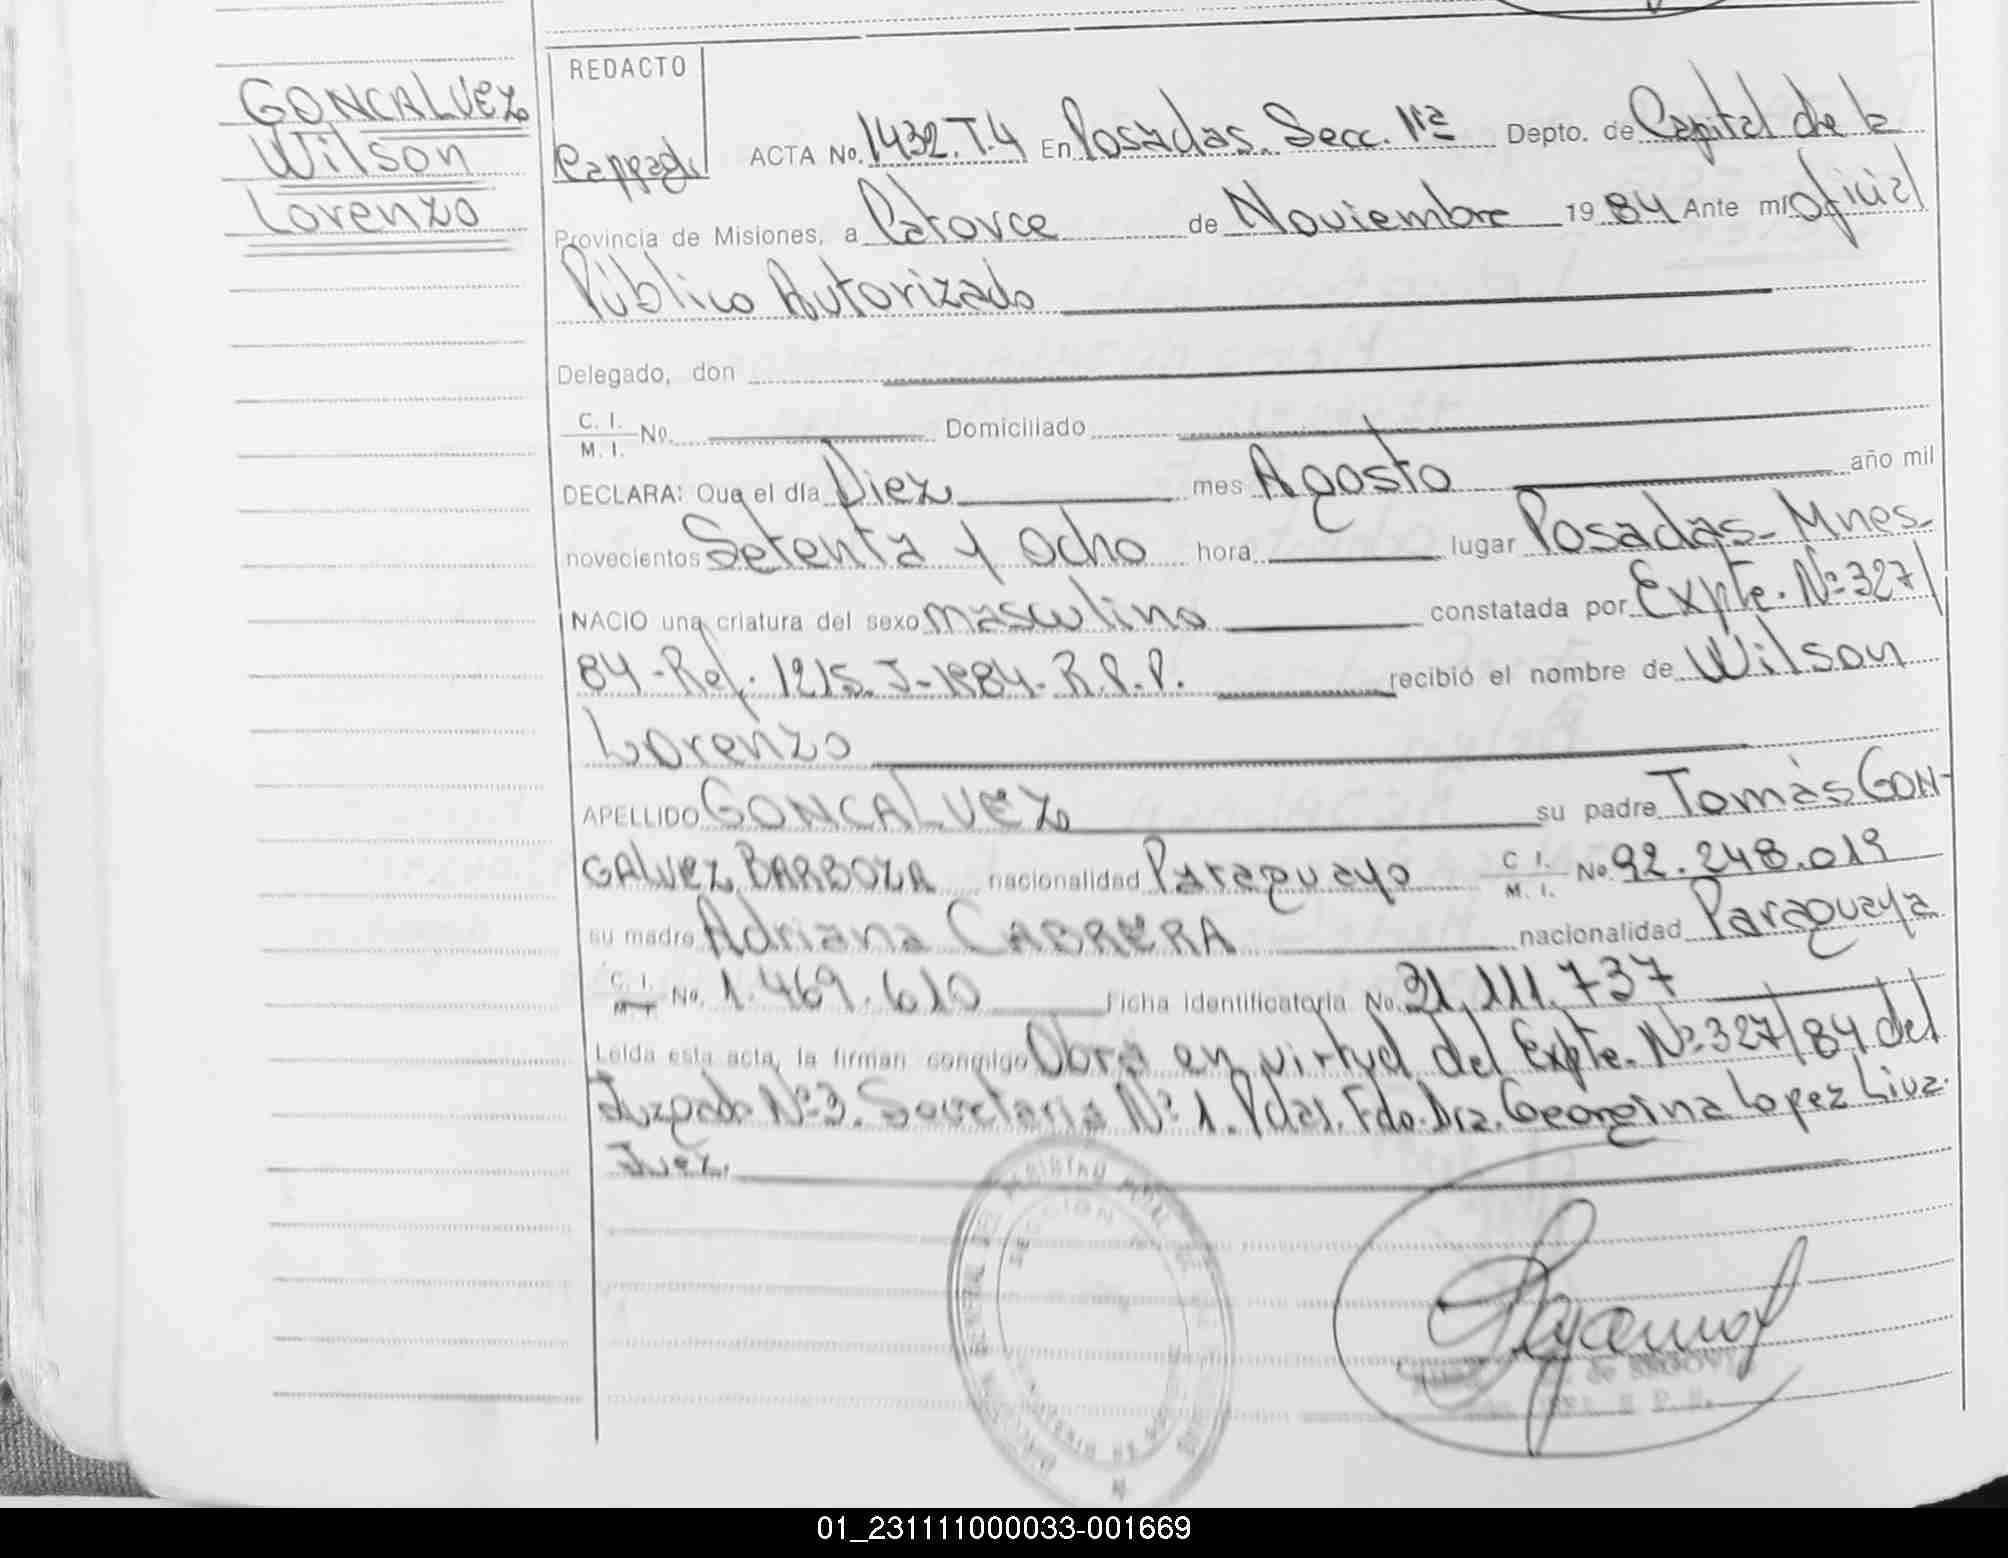 GONCALVEZ
Wilson
Lorenzo
REDACTO
ACTA No. 1432.T.4 En Posadas. Secc. 1ra Depto. de Capital de la
Provincia de Misiones, a Catorce de Noviembre 1984 Ante mi Oficial
Público Autorizado
Delegado, don
C. I.
M. I. No. Domiciliado
DECLARA: Que el día Diez mes Agosto año mil
novecientos Setenta y Ocho hora lugar Posadas-Mnes-
NACIO una criatura del sexo masculino constatada por Expte. Nº 327/
84-Ref. 1215-J-1984-R.P.P. recibió el nombre de Wilson
Lorenzo
APELLIDO GONCALVEZ su padre Tomás GON-
CALVEZ BARBOZA nacionalidad Paraguayo C I. M. I. No. 92.248.019
su madre Adriana CABRERA nacionalidad Paraguaya
C. I. M. I. No. 1.469.610 Ficha identificatoria No. 31.111.737
Leída esta acta, la firman conmigo Obra en virtud del Expte. Nº 327/84 del
Juzgado Nº 3. Secretaria Nº 1. Pdas. Fdo. Dra. Georgina Lopez Liva
Juez.
SECCION
de SEGOVIA
01_231111000033-001669